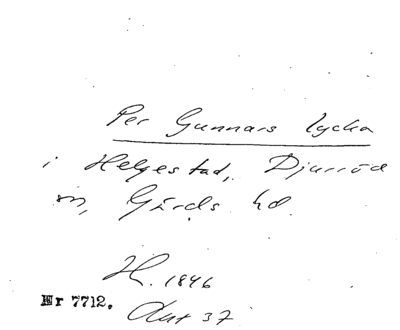 Per Gunnars lycka
i Helgestad, Djurröd
sn, Gärds hd.
H. 1846
Akt 37
Nr 7712.